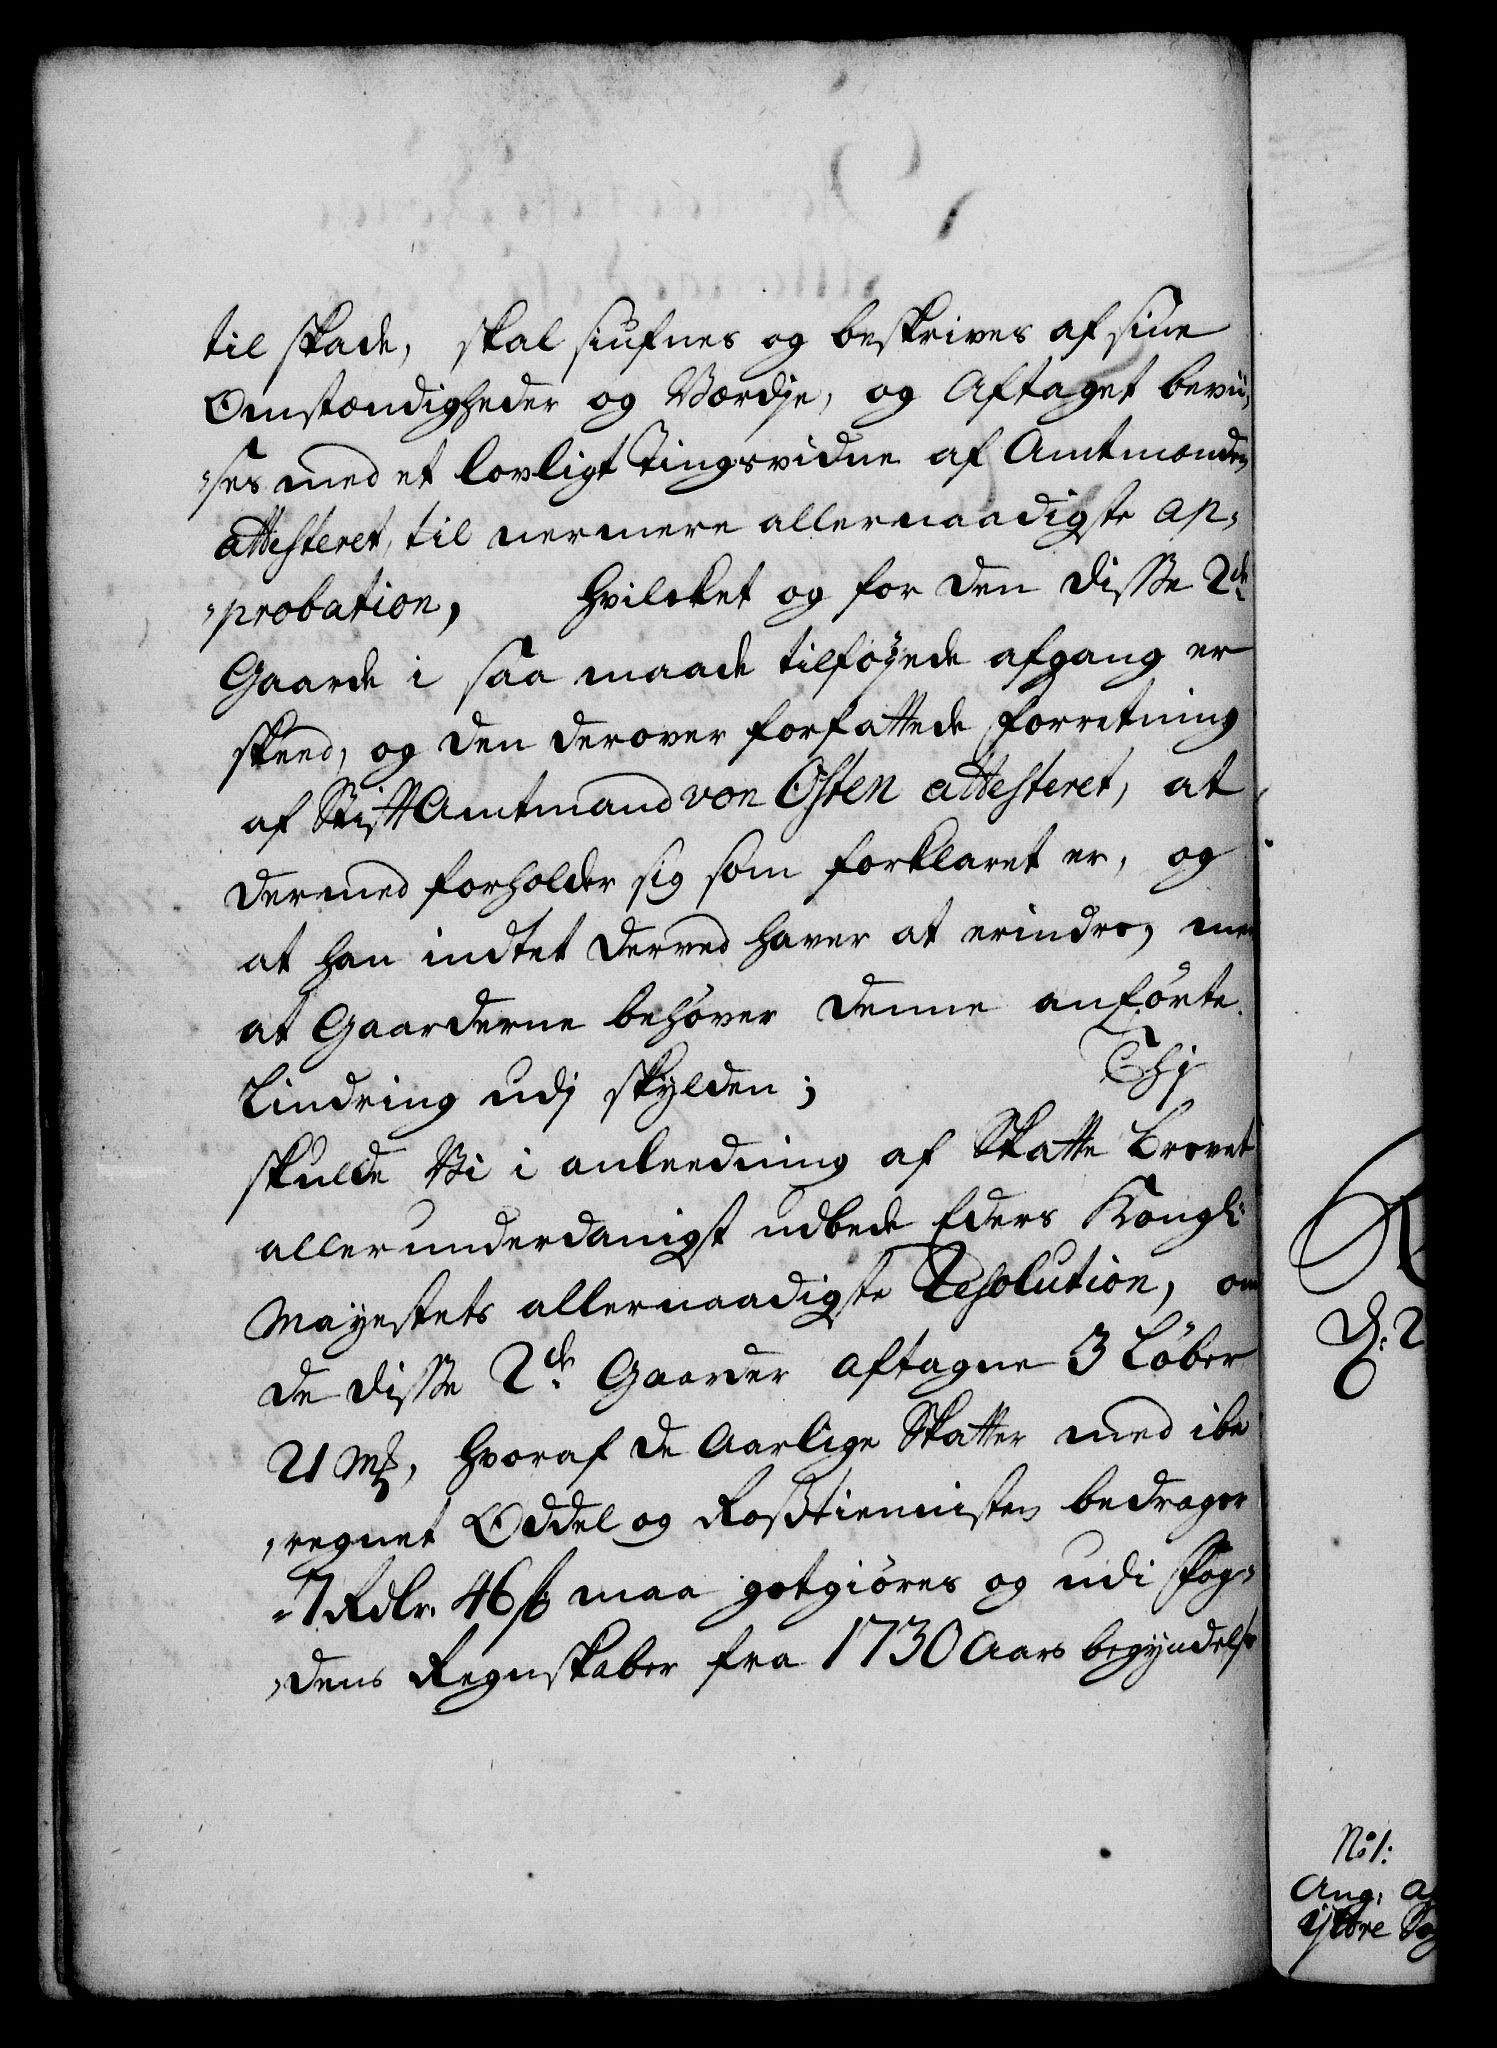 til skade, skal siufnes og beskrives af sine
Omstændigheder og Værdje, og Aftaget bevii,
,ses med et lovligt Tingsvidne af Amtmanden
attesteret, til nermere allernaadigste ap,
,probation, hvilcket og for den disse 2de
Gaarde i saa maade tilføyede afgang er
skeed, og den derover forfattede forretning
af Stift Amtmand von Osten attesteret, at
dermed forholder sig som forklaret er, og
at han indtet derved haver at erindre, men
at Gaarderne behøver denne anførte
Lindring udj skylden; Thj
skulde Vi i anleedning af Skatte brevet
allerunderdanigst udbede Eders Kongl:
Mayestets allernaadigste Resolution, om
de disse 2de Gaarder aftagne 3 Løber
21 Mk, hvoraf de Aarlige Skatter med ibe
,regnet Oddel og Rosstiennisten bedrager
7 Rdlr. 46 s maa gotgiøres og udi fog,
,dens Regnskaber fra 1730 Aars begyndelse
D: 2
No 1:
Ang:
Yttre